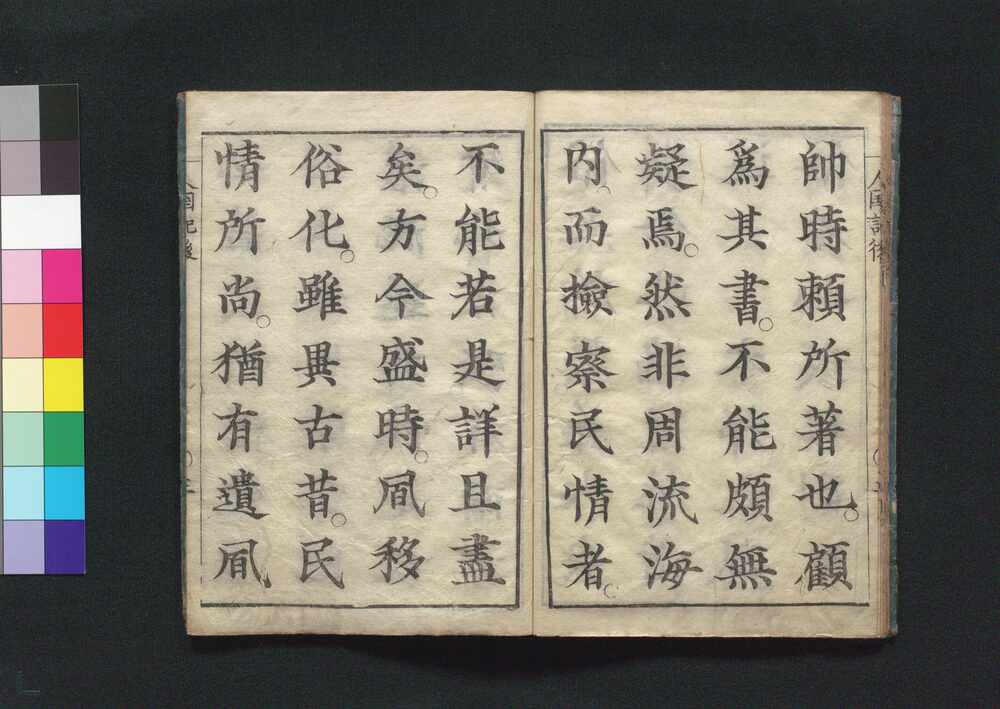 帥時頼所著也。顧
爲其書。不能頗無
疑焉。然非周流海
内。而撿察民情者。
不能若是詳且盡
矣。方今盛時。凬移
俗化。雖異古昔。民
情所尚。猶有遺凬